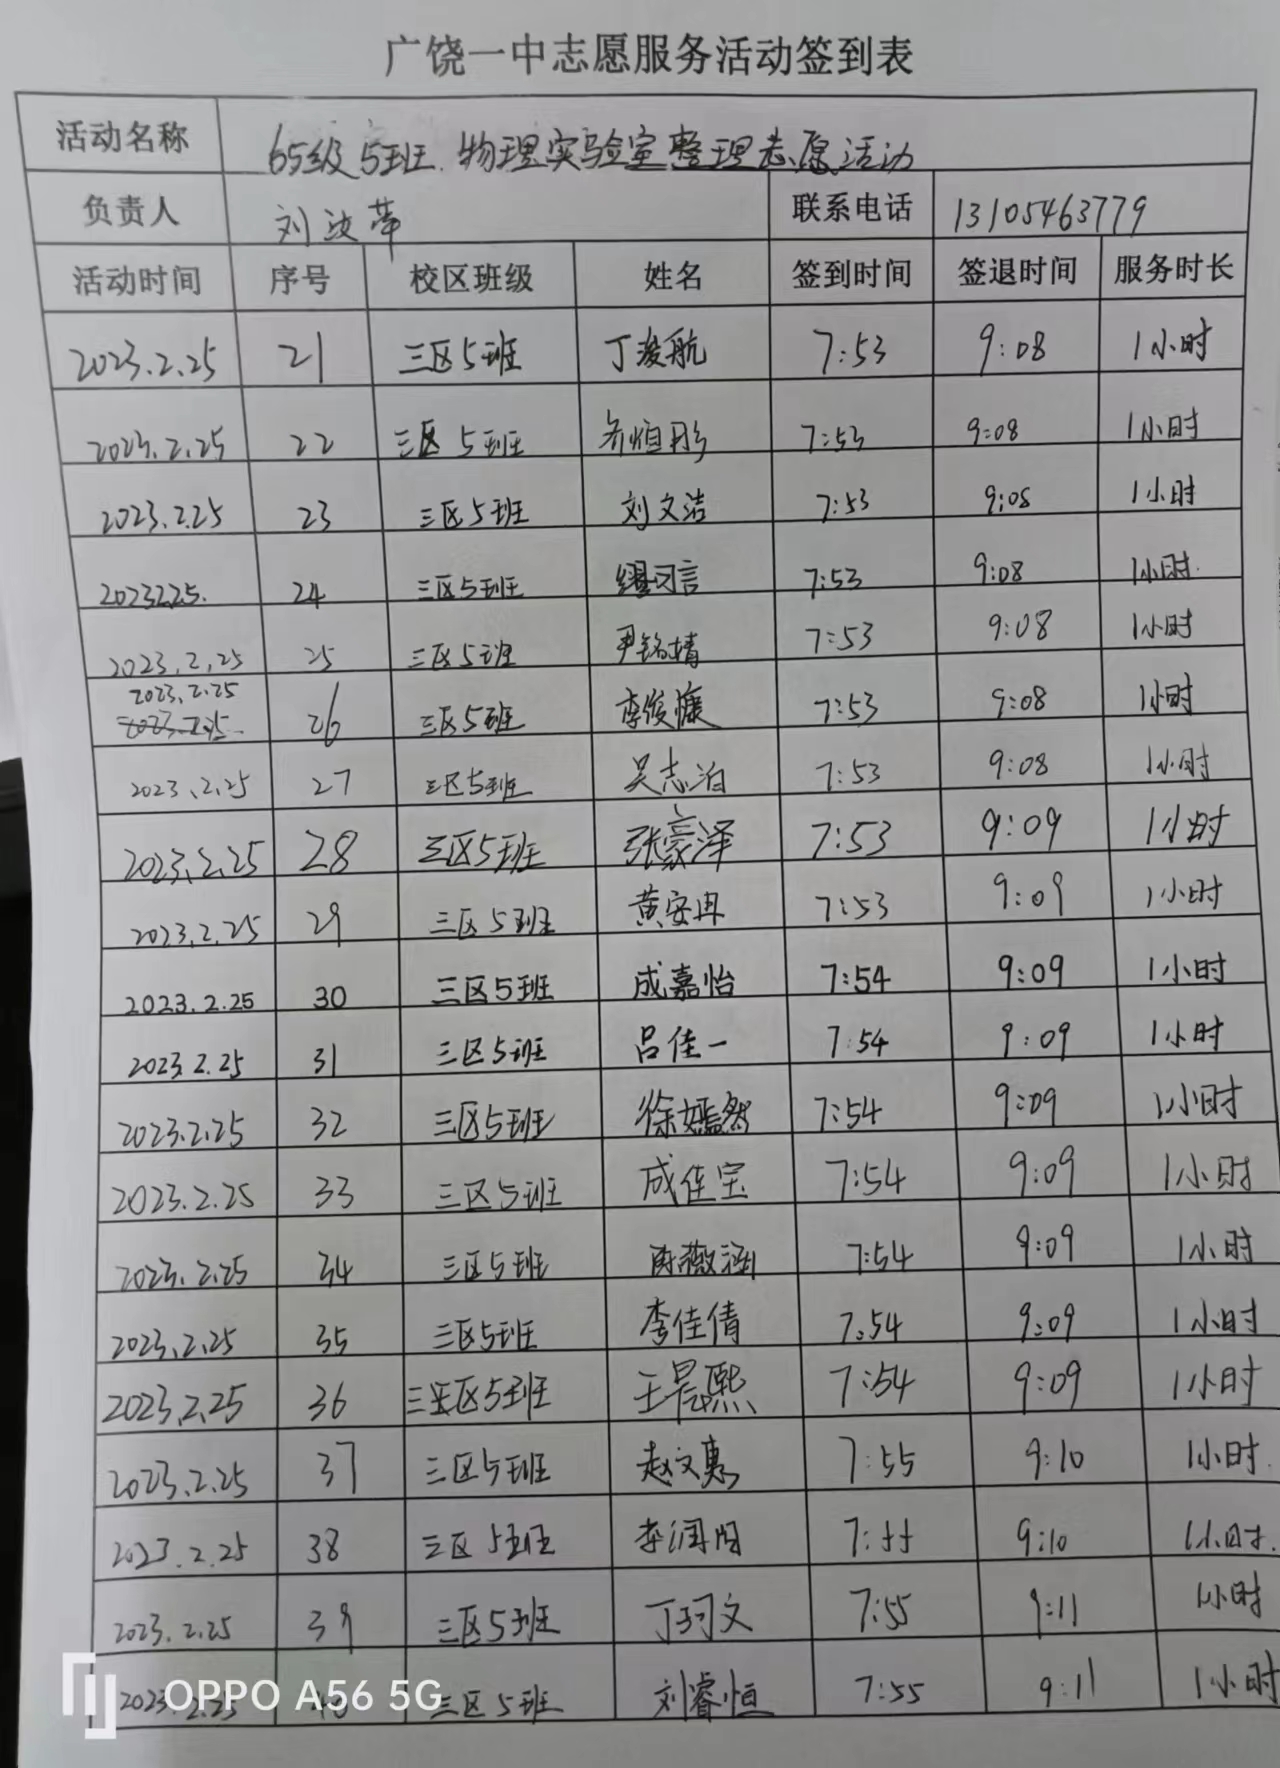 广饶一中志愿服务活动签到表
活动名称 65级5班.物理实验室整理志愿活动
负责人 刘汝萍 联系电话 13105463779
活动时间 序号 校区班级 姓名 签到时间 签退时间 服务时长
2023.2.25 21 三区5班 丁浚航 7:53 9:08 1小时
2023.2.25 22 三区5班 7:53 9:08 1小时
2023.2.25 23 三区5班 刘文洁 7:53 9:08 1小时
2023.2.25. 24 三区5班 7:53 9:08 1小时.
2023.2.25 25 三区5班 尹铭婧 7:53 9:08 1小时
2023.2.25
2023.2.25 26 三区5班 李俊慷 7:53 9:08 1小时
2023.2.25 27 三区5班 吴志泊 7:53 9:08 1小时
2023.2.25 28 三区5班 张豪泽 7:53 9:09 1小时
2023.2.25 29 三区5班 黄安冉 7:53 9:09 1小时
2023.2.25 30 三区5班 成嘉怡 7:54 9:09 1小时
2023.2.25 31 三区5班 吕佳一 7:54 9:09 1小时
2023.2.25 32 三区5班 徐嫣然 7:54 9:09 1小时
2023.2.25 33 三区5班 成佳宝 7:54 9:09 1小时
2023.2.25 34 三区5班 7:54 9:09 1小时
2023.2.25 35 三区5班 李佳倩 7:54 9:09 1小时
2023.2.25 36 三区5班 王晨熙 7:54 9:09 1小时
2023.2.25 37 三区5班 赵文惠 7:55 9:10 1小时.
2023.2.25 38 三区5班 李润阳 7:55 9:10 1小时.
2023.2.25 39 三区5班 丁珂文 7:55 9:11 1小时
2023.2.25 40 三区5班 刘睿恒 7:55 9:11 1小时
OPPO A56 5G